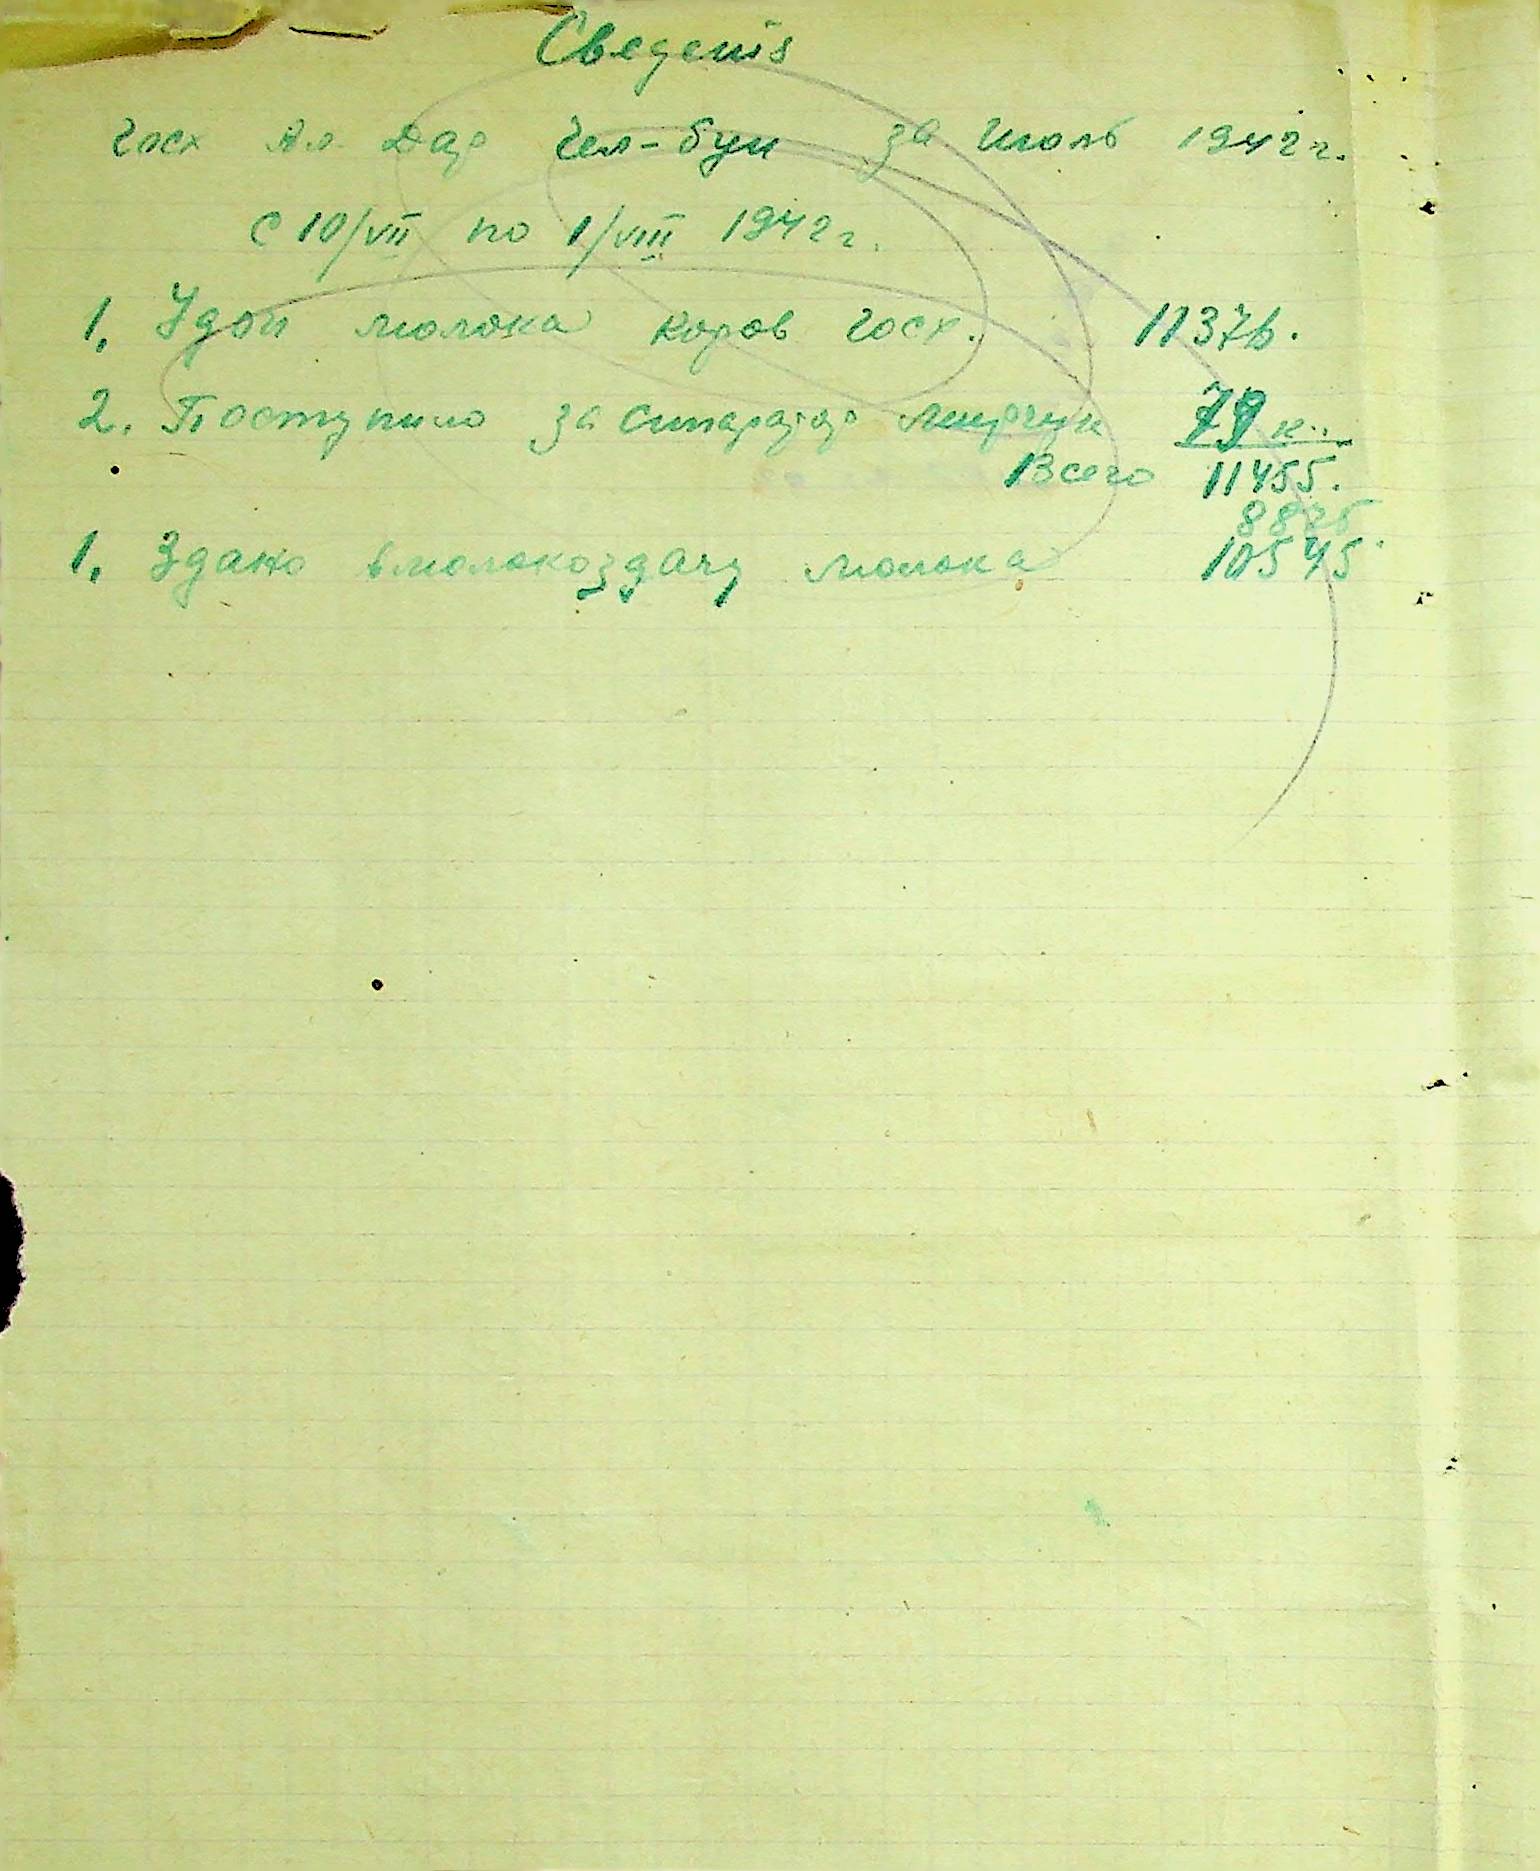 Сведенія
Госх Ал. Дар Чел-бун за Июль 1942 г.
С 10/VII по 1/VIII 1942 г.
1. Удой молока коров Госх. 11376.
2. Поступило за сипаратор 79 к.
Всего 11455.
1. Здано вмолокоздачу молока 10545